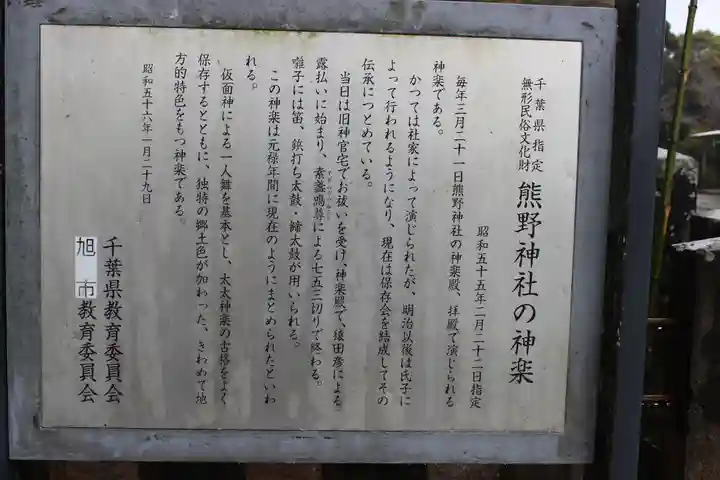 千葉県指定
無形民俗文化財
熊野神社の神楽
昭和五十五年二月二十二日指定
毎年三月二十一日熊野神社の神楽殿、拝殿で演じられる
神楽である。
かつては社家によって演じられたが、明治以後は氏子に
よって行われるようになり、現在は保存会を結成してその
伝承につとめている。
当日は旧神官宅でお祓いを受け、神楽殿で、猿田彦による
露払いに始まり、素盞嗚尊による七五三切りで終わる。
囃子には笛、鋲打ち太鼓・鞨太鼓が用いられる。
この神楽は元禄年間に現在のようにまとめられたといわ
れる。
仮面神による一人舞を基本とし、太太神楽の古格をよく
保存するとともに、独特の郷土色が加わった、きわめて地
方的特色をもつ神楽である。
昭和五十六年一月二十九日
千葉県教育委員会
旭市教育委員会